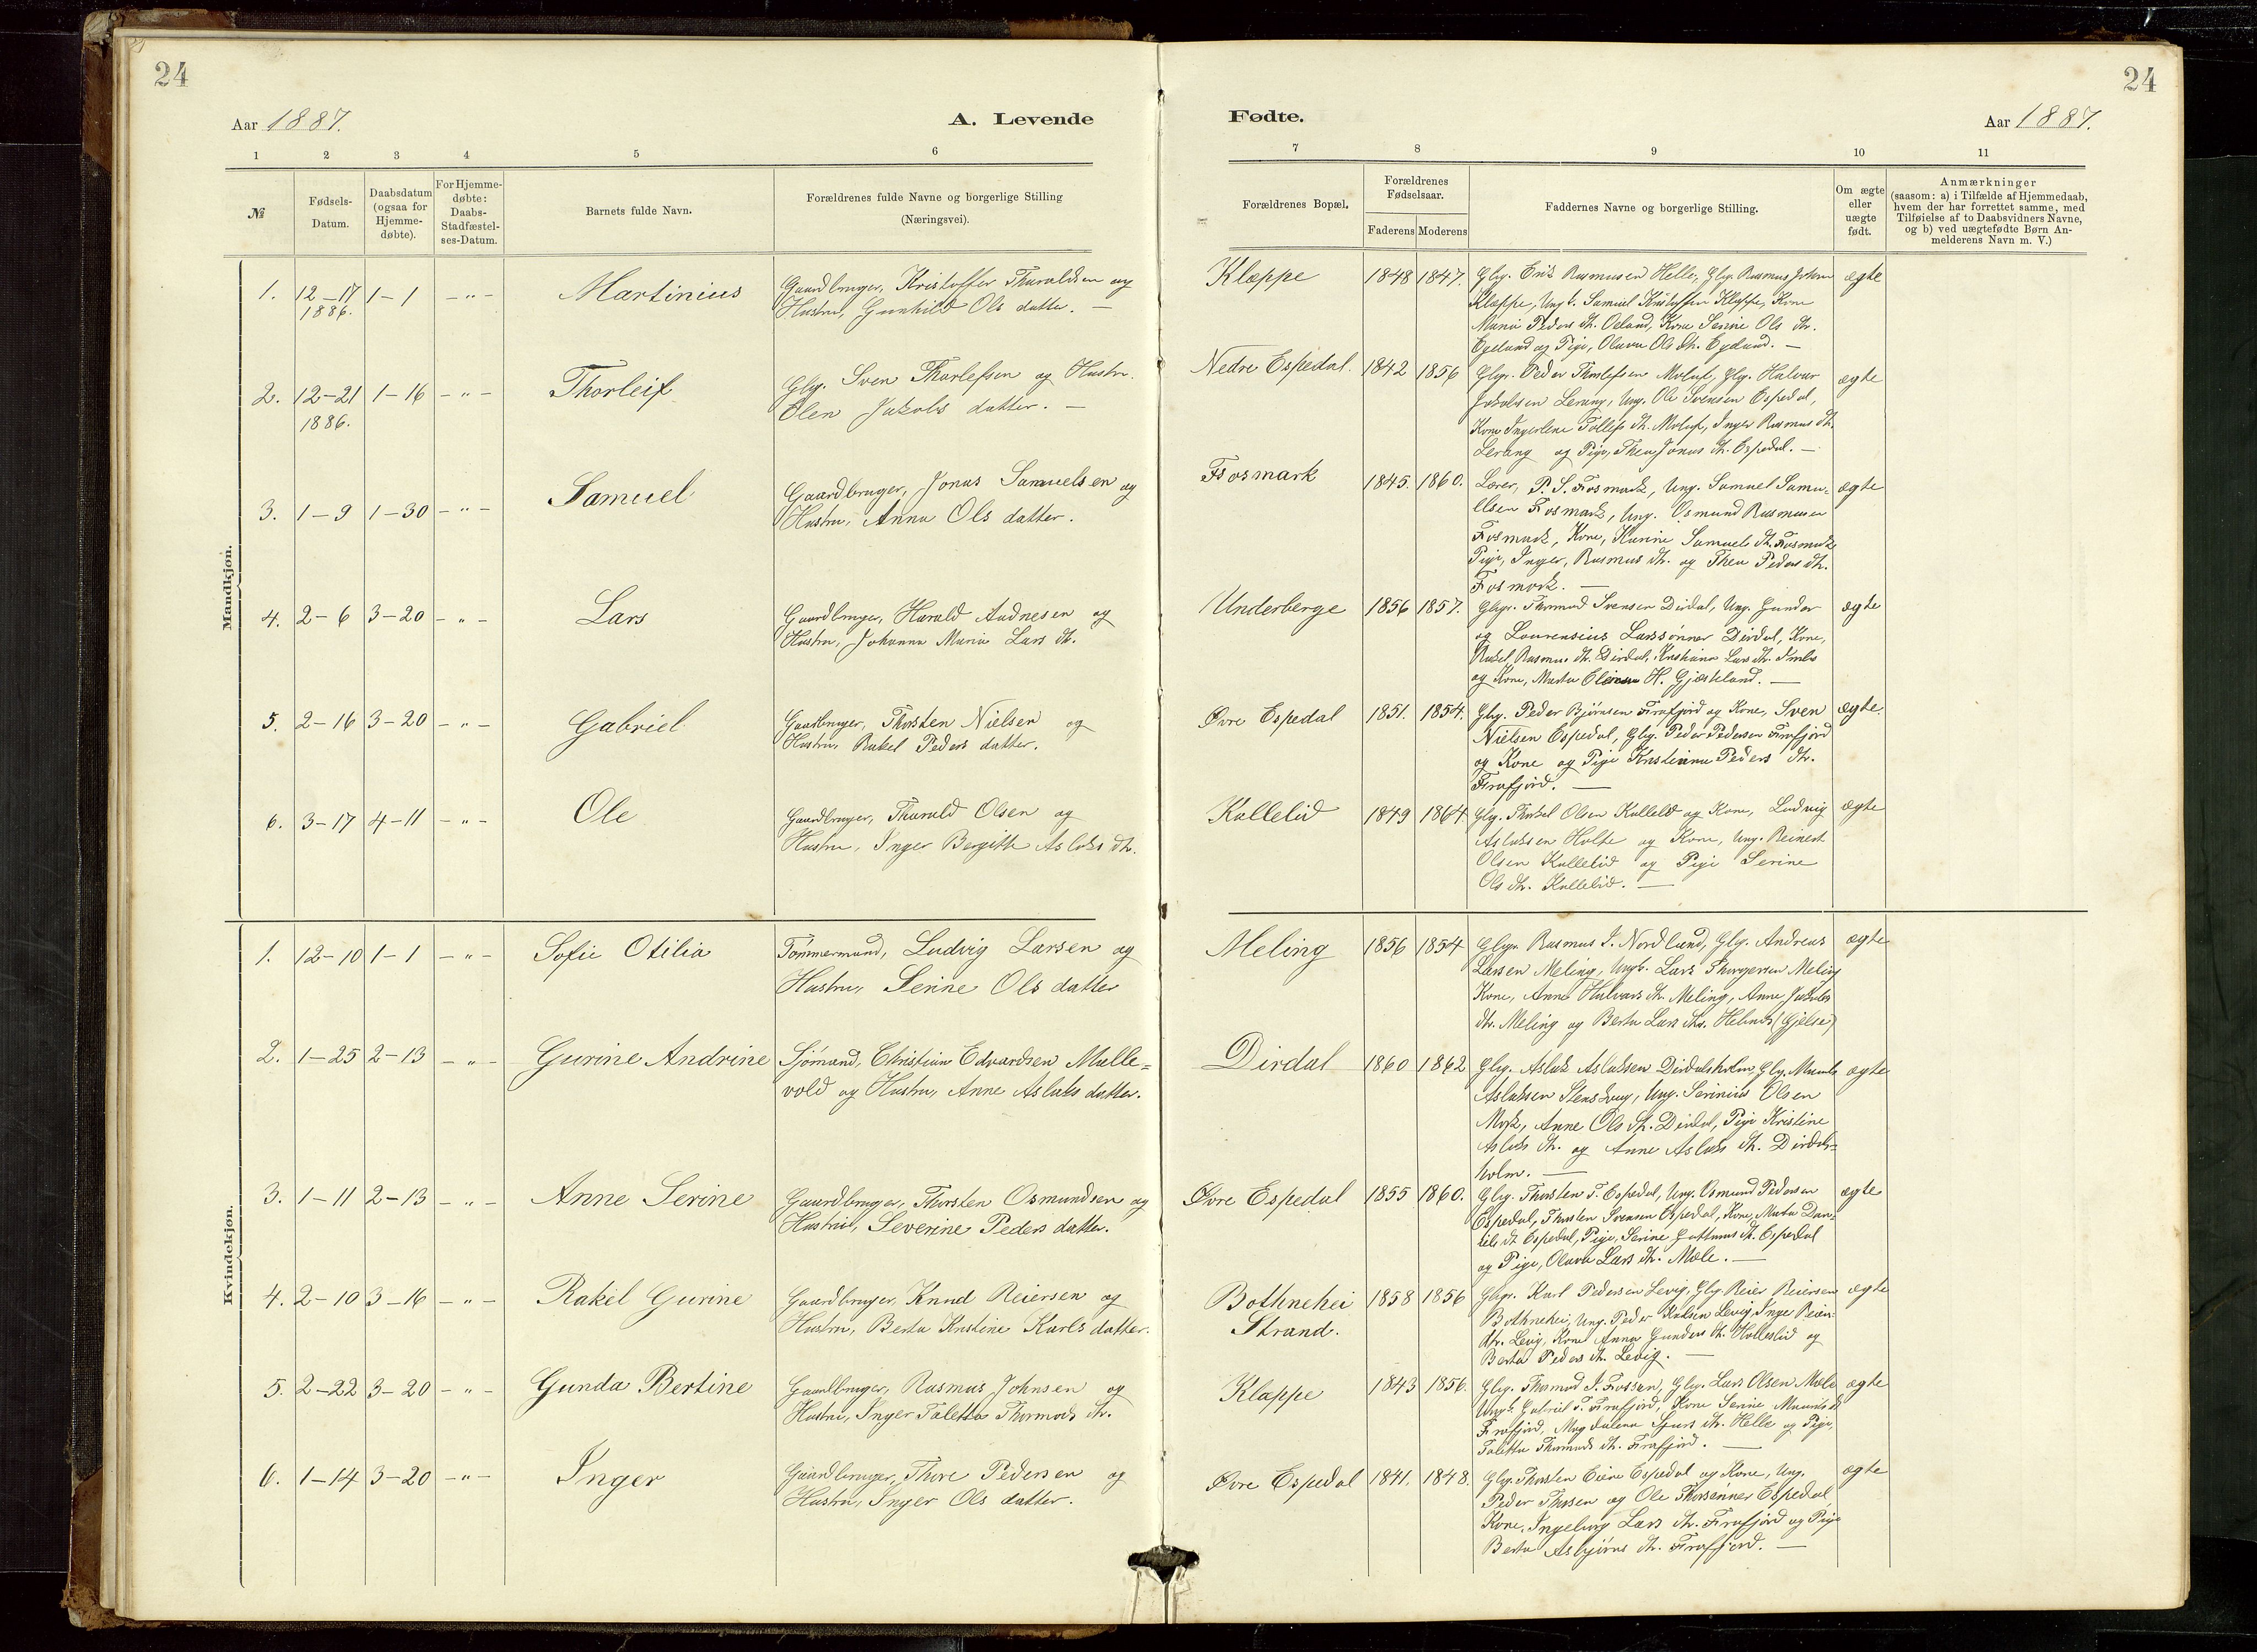 24
Aar 1887.
A. Levende
1 2 3 4 5 6
№
Fødsels-
Datum.
Daabsdatum
(ogsaa for
Hjemme-
døbte).
For Hjemme-
døbte:
Daabs-
Stadfæstel-
ses-Datum.
Barnets fulde Navn.
Forældrenes fulde Navne og borgerlige Stilling
(Næringsvei).
Mandkjøn.
1. 12-17 1-1 -"- Martinius Gaardbruger, Kristoffer Thoraldsen og
1886. Hustru, Gunhild Ols datter. —
2. 12-21 1-16 -"- Thorleif Gbgr. Sven Thorlefsen og Hustru
1886. Elen Jakobs datter. —
3. 1-9 1-30 -"- Samuel Gaardbruger, Jonas Samuelsen og
Hustru, Anna Ols datter.
4. 2-6 3-20 -"- Lars Gaardbruger, Harald Audnesen og
Hustru, Johanna Maria Lars dtr.
5. 2-16 3-20 -"- Gabriel Gaardbruger, Thorsten Nielsen og
Hustru, Rakel Peders datter.
6. 3-17 4-11 -"- Ole Gaardbruger, Thorald Olsen og
Hustru, Inger Bergitte Aslaks dtr.
Kvindekjøn.
1. 12-10 1-1 -"- Sofie Otilia Tømmermand, Ludvig Larsen og
Hustru, Serine Ols datter
2. 1-25 2-13 -"- Gurine Andrine Sjømand, Christian Edvardsen Malle-
vold og Hustru, Anne Aslaks datter.
3. 1-11 2-13 -"- Anne Serine Gaardbruger, Thorsten Osmundsen og
Hustru, Severine Peders datter.
4. 2-10 3-16 -"- Rakel Gurine Gaardbruger, Knud Reiersen og
Hustru, Berta Kristine Karls datter.
5. 2-22 3-20 -"- Gunda Bertine Gaardbruger, Rasmus Johnsen og
Hustru, Inger Taletta Thormods dtr.
6. 1-14 3-20 -"- Inger Gaardbruger, Thore Pedersen og
Hustru, Inger Ols datter.
24
Fødte.
Aar 1887.
7 8 9 10 11
Forældrenes Bopæl.
Forældrenes
Fødselsaar.
Faderens Moderens
Faddernes Navne og borgerlige Stilling.
Om ægte
eller
uægte
født.
Anmærkninger
(saasom: a) i Tilfælde af Hjemmedaab,
hvem der har forrettet samme, med
Tilføielse af to Daabsvidners Navne,
og b) ved uægtefødte Børn An-
melderens Navn m. V.)
Klæppe 1848 1847. Gbg. Erik Rasmusen Helle, Gbg. Rasmus Johnsen ægte
Klæppe, Ung k. Samuel Kristoffersen Klæppe, Kone
Maria Peders dtr. Oeland, Kone Serine Ols dtr.
Egeland og Pige, Olava Ols dtr. Egeland. —
Nedre Espedal. 1842 1856 Gbgr. Peder Thorlefsen Molaug, Gbg. Halvar ægte
Jakobsen Lerang, Ung. Ole Svensen Espedal,
Kone Ingerlene Tollefs dtr. , Inger Rasmus dtr.
Lerang og Pige, Thea Jonas dtr. Espedal. —
Fosmark 1845. 1860. Lærer, P. S. Fosmark, Ung. Samuel Samu- ægte
elsen Fosmark, Ung. Osmund Rasmusen
Fosmark, Kone, Karine Samuels dtr. Fosmark
Pige, Inger, Rasmus dtr. og Thea Peders dtr.
Fosmark. —
Underberge 1856 1857. Gbgr. Thormod Svensen Dirdal, Ung. Gunder ægte
og Lourensius Larssønner Dirdal, Kone,
Rakel Rasmus dtr. Dirdal, Kristiane Lars dtr.
og Kone, Marta H. Gjesteland. —
Øvre Espedal 1851. 1854. Gbg. Peder Bjørnsen Frafjord og Kone, Sven ægte.
Nielsen Espedal, Gbg. Peder Pedersen Frafjord
og Kone og Pige Kristianna Peders dtr.
Frafjord. —
Kallelid 1849 1864 Gbg. Thorkel Olsen Kallelid og Kone, Ludvig ægte
Aslaksen Holte og Kone, Ung. Reinert
Olsen Kallelid og Pige Serine
Ols dtr. Kallelid. —
Meling 1856 1854 Gbgr. Rasmus I. Nordlund, Gbg. Andreas ægte
Larsen Meling, Ungk. Lars Thorgersen Meling
Kone, Anne Halvars dtr. Meling, Anne Jakobs
dtr. Meling og Berta Lars dtr. (Gjelse)
Dirdal 1860 1862 Gbg. Aslak Aslaksen Dirdalsholm, Gbg. ægte
Aslaksen , Ung. Serinius Olsen
Mork, Anne Ols dtr. Dirdal, Pige Kristine
Aslaks dtr. og Anne Aslaks dtr. Dirdals-
holm. —
Øvre Espedal 1855 1860. Gbg. Thorsten T. Espedal, Ung. Osmund Pedersen ægte
Espedal, Thorsten Svensen Espedal, Kone, Marta Dan-
iels dtr. Espedal, Pige, Serine dtr. Espedal
og Pige, Olava Lars dtr. Mæle. —
Bothnehei 1858 1856 Gbgr. Karl Pedersen Levig, Gbg. Reier Reiersen ægte
Strand. Bothnehei, Ung. Peder Karlsen Levig, Inger Reiers
dtr. Levig, Kone Anna Gunders dtr. Holleslid og
Berta Peders dtr. Levig. —
Klappe 1843 1856. Gbg. Thormod I. Fossan, Gbg. Lars Olsen Mæle ægte
Ungk. Gabriel T. Frafjord, Kone Serine dtr.
Frafjord, Magdalena dtr. Helle og Pige,
Taletta Thormods dtr. Frafjord. —
Øvre Espedal 1841. 1848. Gbg. Thorsten Espedal og Kone, Ung. ægte
Peder Thorsen og Ole Thorsønner Espedal
Kone, Ingeborg Lars dtr. Frafjord og Pige
Berta Asbjørns dtr. Frafjord. —